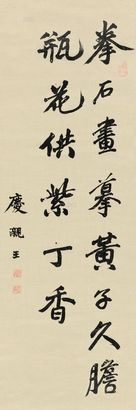 拳石畫摹黃子久膽
瓶花供紫丁香
慶瀾王